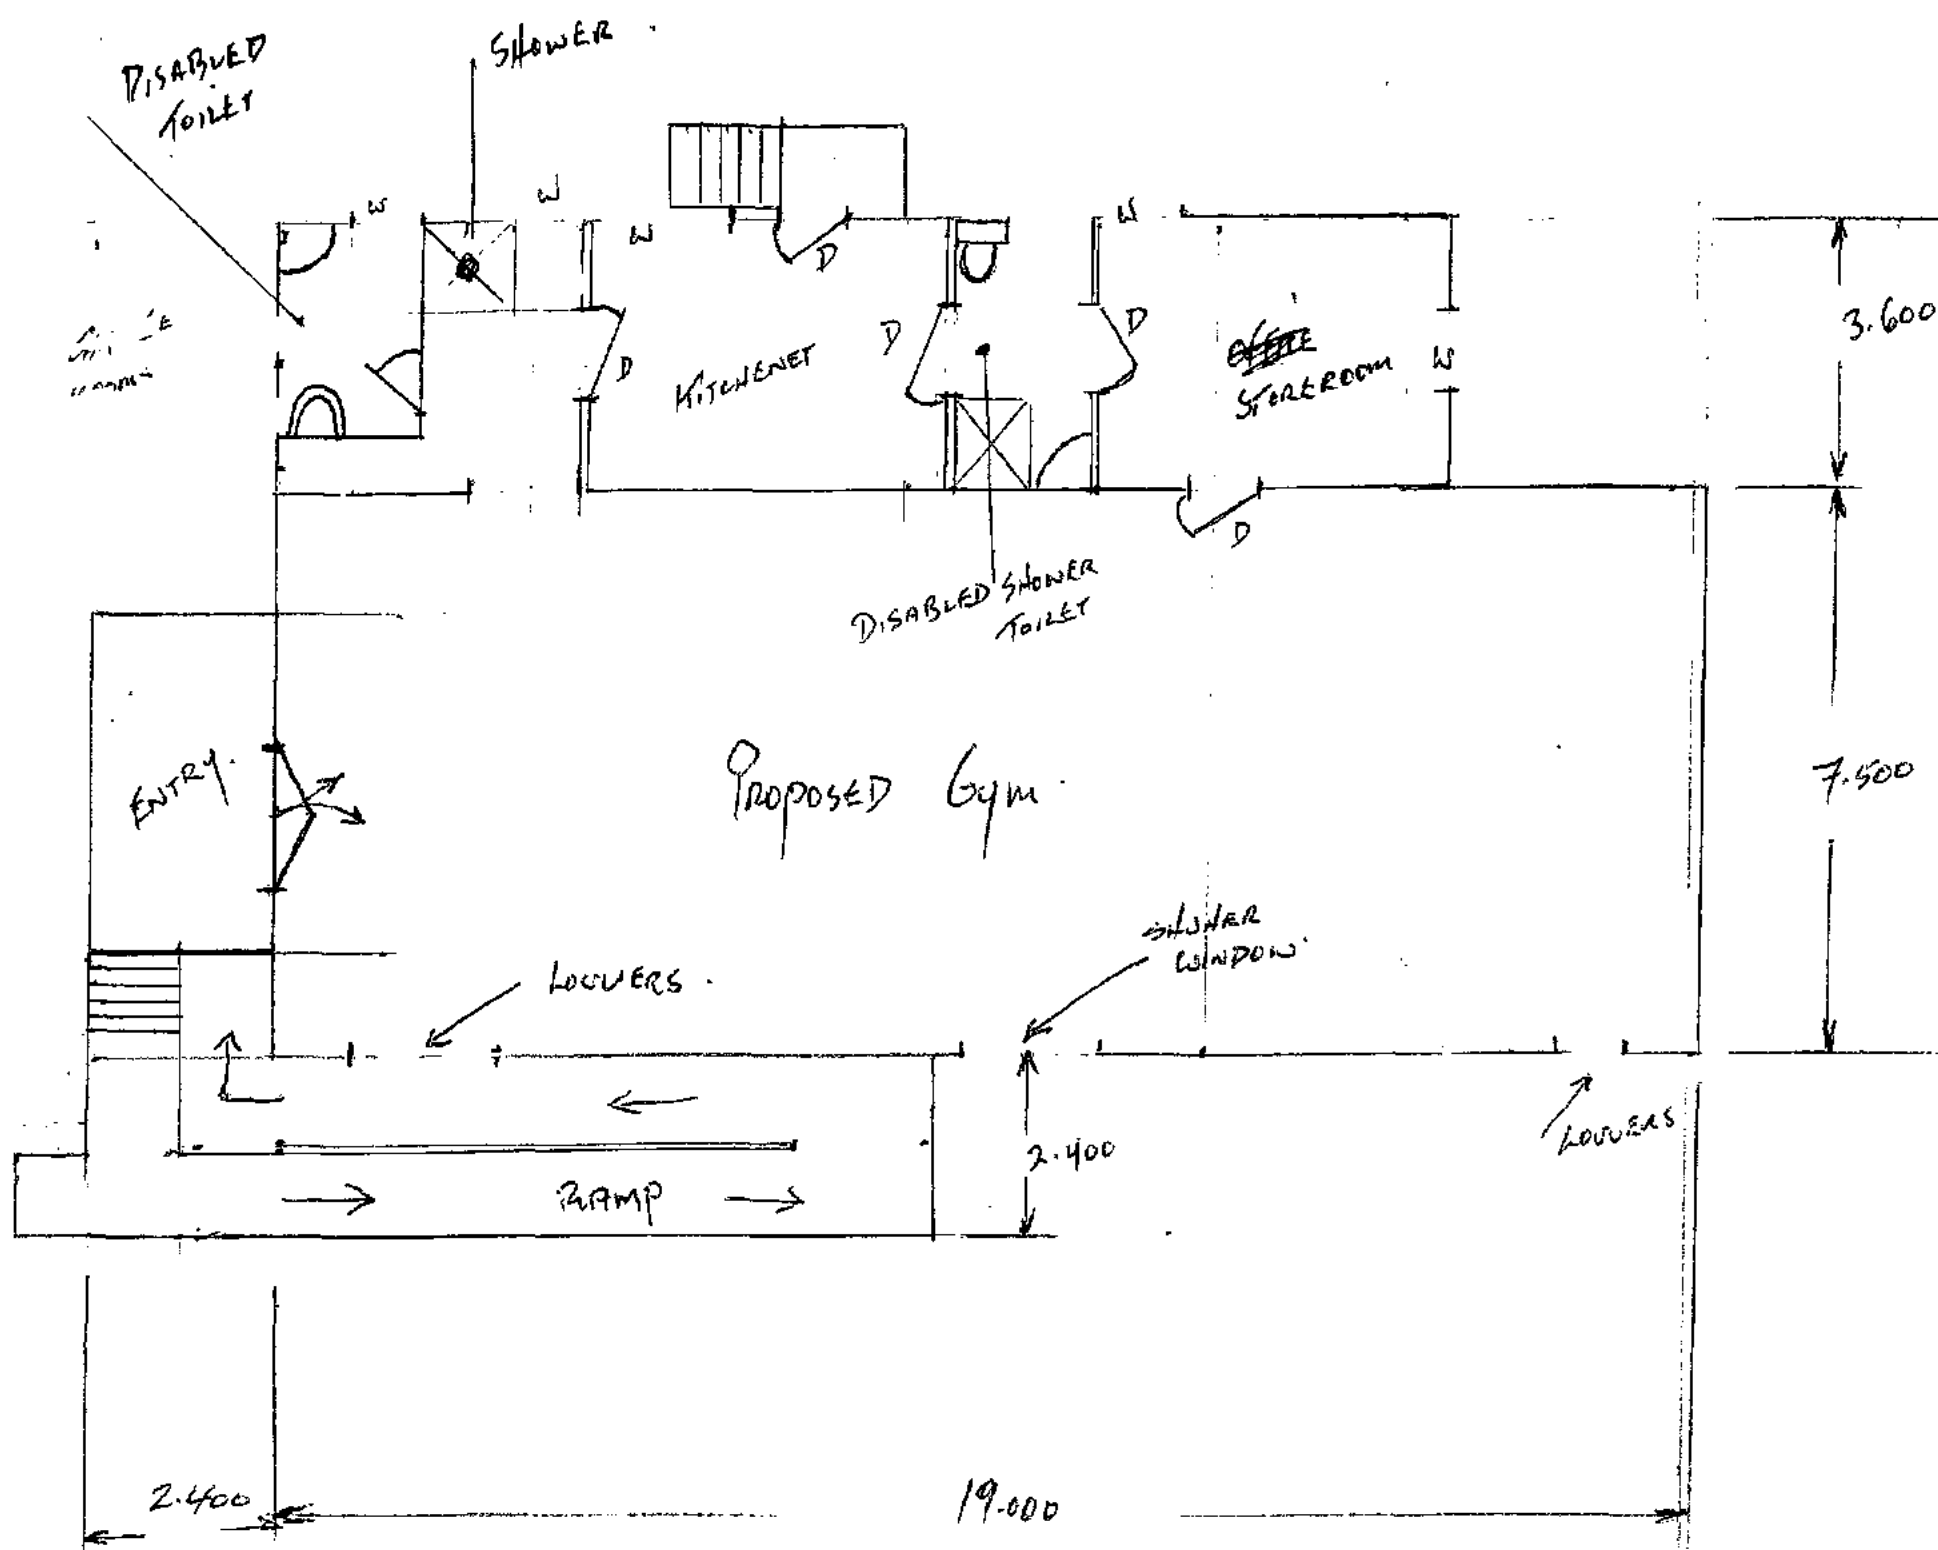 DISABLED
TOILET
SHOWER
W
W
W
D
W
D
D
D
KITCHENET
STOREROOM
W
3.600
D
DISABLED SHOWER
TOILET
ENTRY
PROPOSED Gym
7.500
WINDOW
LOUVERS
LOUVERS
2.400
RAMP
2.400
19.000